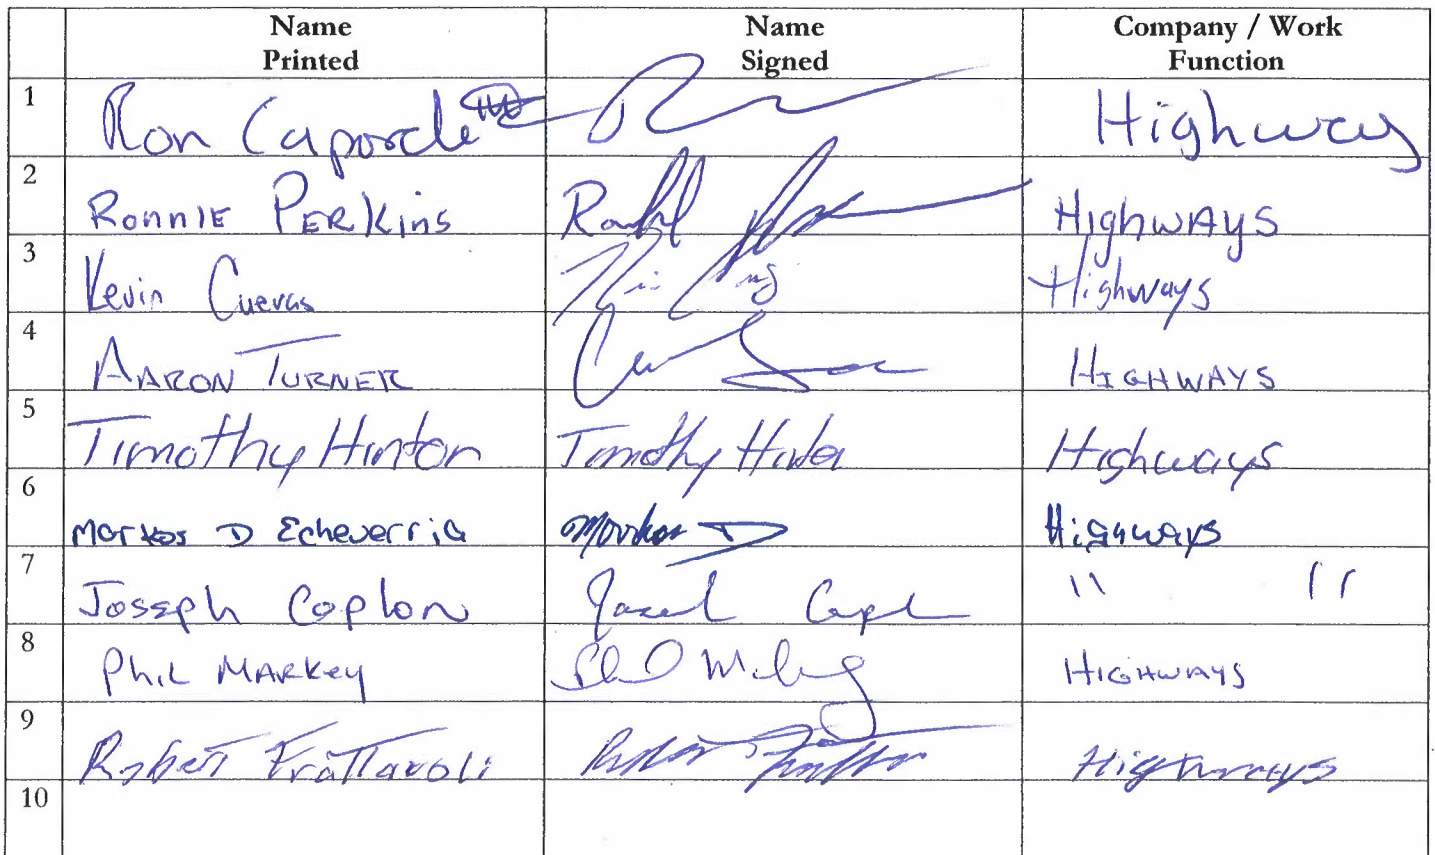 Name Printed Name Signed Company / Work Function
1 Ron Caporale Highway
2 Ronnie PERKins HighwAys
3 Kevin Cuevas Highways
4 AARON TURNER HIGHWAYS
5 Timothy Hinton Timothy Hinton Highways
6 Markos D Echeverria Markos D Highways
7 Joseph Coplon " "
8 Phil MARKey HIGHWAYS
9 Robert Frattaroli Highways
10